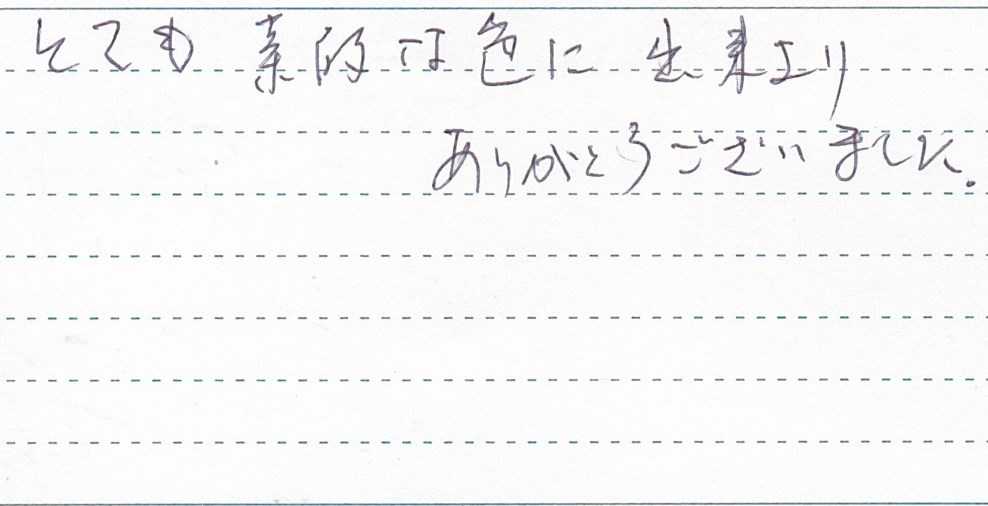 とても素敵な色に出来上り
ありがとうございました。